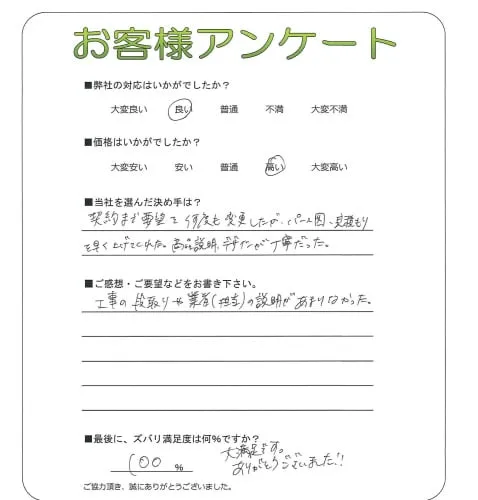 お客様アンケート
■弊社の対応はいかがでしたか?
大変良い 良い 普通 不満 大変不満
■価格はいかがでしたか?
大変安い 安い 普通 高い 大変高い
■当社を選んだ決め手は?
契約まで要望を何度も変更したが、パース図、見積もり
を早く上げてくれた。商品説明、デザインが丁寧だった。
■ご感想・ご要望などをお書き下さい。
工事の段取りや業者(担当)の説明があまりなかった。
■最後に、ズバリ満足度は何%ですか?
100 %
大満足です。
ありがとうございました!!
ご協力頂き、誠にありがとうございました。